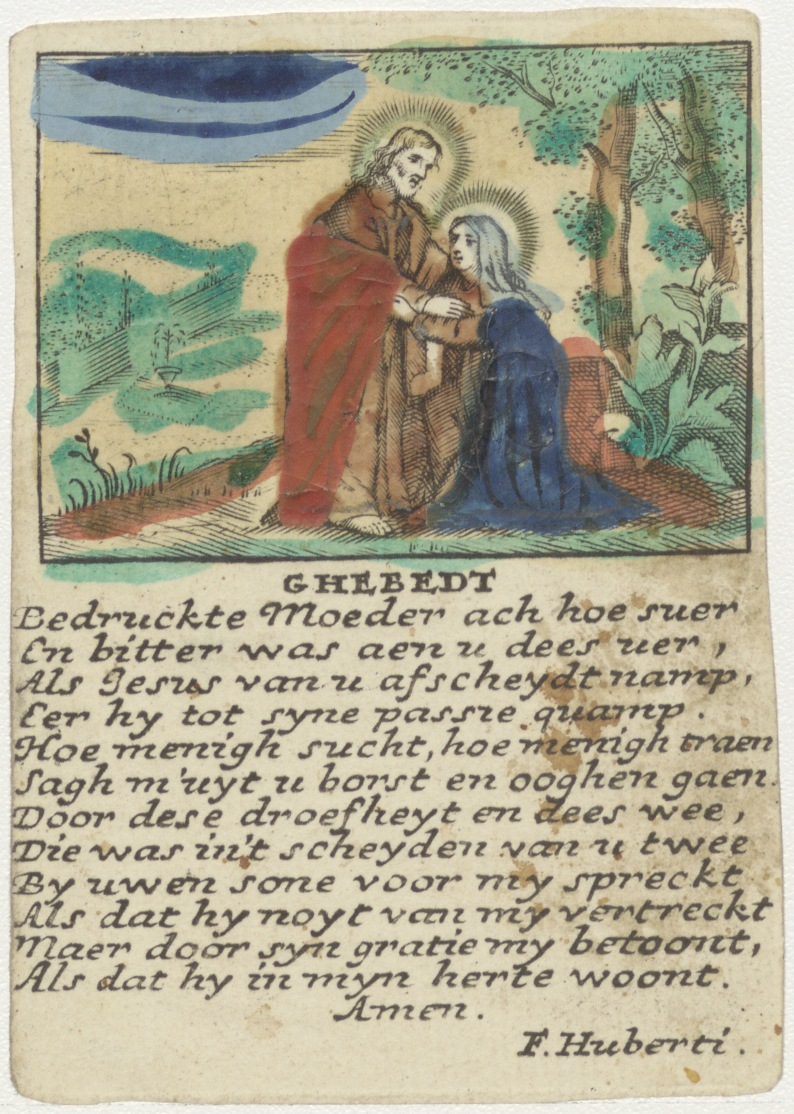 GHEBEDT
Bedruckte Moeder ach hoe suer
En bitter was aen u dees uer,
Als Jesus van u afscheydt namp,
Eer hy tot syne passie quamp.
Hoe menigh sucht, hoe menigh traen
Sagh m'uyt u borst en ooghen gaen.
Door dese droefheyt en dees wee,
Die was in't scheyden van u twee
By uwen sone voor my spreckt
Als dat hy noyt van my vertreckt
Maer door syn gratie my betoont,
Als dat hy in myn herte woont.
Amen.
F. Huberti.